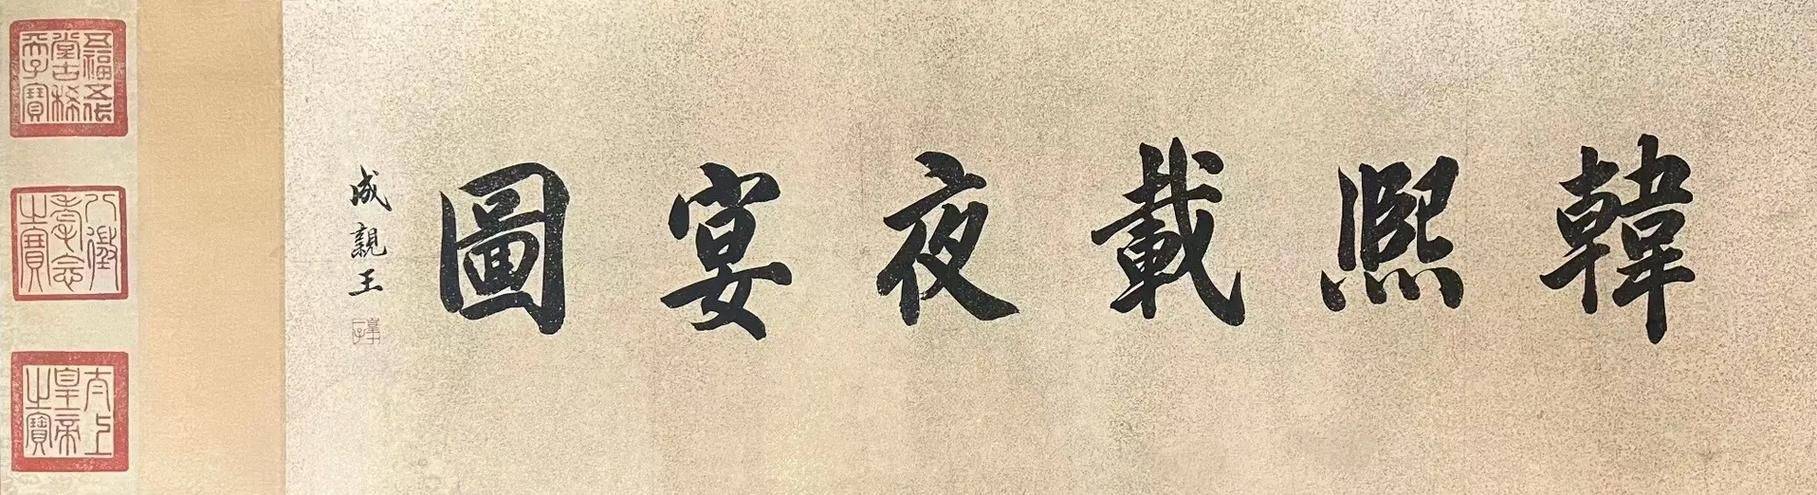 韓熙載夜宴圖
成親王
五福五代堂古稀天子寶
八徵耄念之寶
太上皇帝之寶